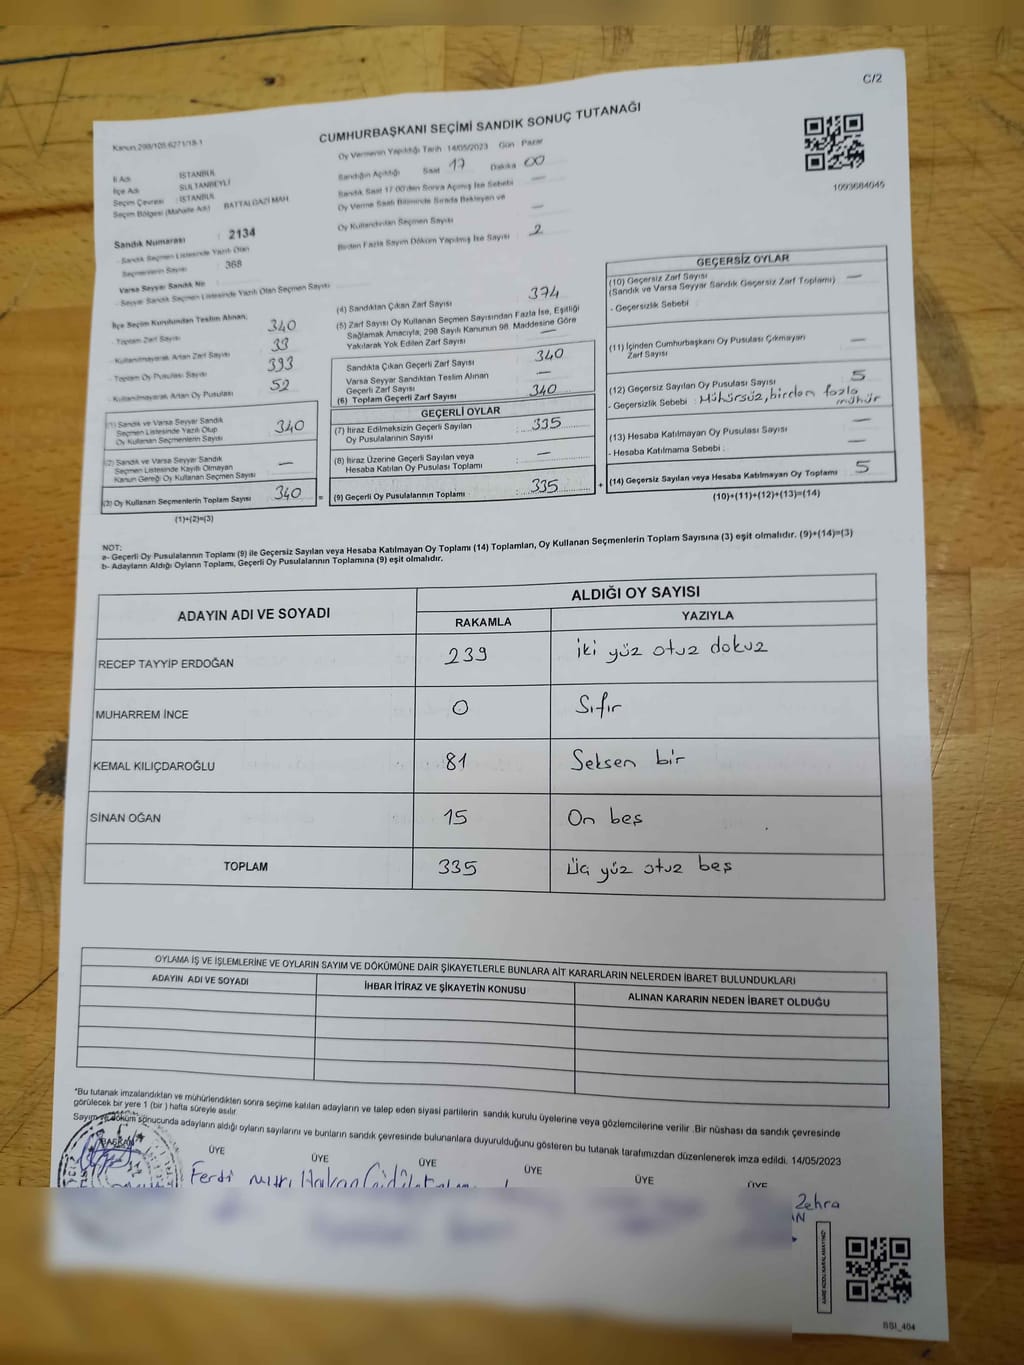 C/2
CUMHURBAŞKANI SEÇİMİ SANDIK SONUÇ TUTANAĞI
Kanun 298/105 6271/18-1
Oy Vermenin Yapıldığı Tarih : 14/05/2023 Gün Pazar
Sandığın Açıldığı Saat 17 Dakika 00
Sandık Saat 17.00'den Sonra Açılmış İse Sebebi —
Oy Verme Saati Bitiminde Sırada Bekleyen ve
Oy Kullandırılan Seçmen Sayısı —
Birden Fazla Sayım Döküm Yapılmış İse Sayısı 2
1093684045
İl Adı : İSTANBUL
İlçe Adı : SULTANBEYLİ
Seçim Çevresi : İSTANBUL
Seçim Bölgesi (Mahalle Adı) : BATTALGAZİ MAH.
Sandık Numarası : 2134
- Sandık Seçmen Listesinde Yazılı Olan
Seçmenlerin Sayısı : 368
Varsa Seyyar Sandık No :
- Seyyar Sandık Seçmen Listesinde Yazılı Olan Seçmen Sayısı :
İlçe Seçim Kurulundan Teslim Alınan;
- Toplam Zarf Sayısı 340
- Kullanılmayarak Artan Zarf Sayısı 33
- Toplam Oy Pusulası Sayısı 393
- Kullanılmayarak Artan Oy Pusulası 52
(1) Sandık ve Varsa Seyyar Sandık
Seçmen Listesinde Yazılı Olup
Oy Kullanan Seçmenlerin Sayısı 340
(2) Sandık ve Varsa Seyyar Sandık
Seçmen Listesinde Kayıtlı Olmayan
Kanun Gereği Oy Kullanan Seçmen Sayısı —
(3) Oy Kullanan Seçmenlerin Toplam Sayısı 340 =
(1)+(2)=(3)
(4) Sandıktan Çıkan Zarf Sayısı 374
(5) Zarf Sayısı Oy Kullanan Seçmen Sayısından Fazla İse, Eşitliği
Sağlamak Amacıyla, 298 Sayılı Kanunun 98. Maddesine Göre
Yakılarak Yok Edilen Zarf Sayısı —
Sandıkta Çıkan Geçerli Zarf Sayısı 340
Varsa Seyyar Sandıktan Teslim Alınan
Geçerli Zarf Sayısı —
(6) Toplam Geçerli Zarf Sayısı 340
GEÇERLİ OYLAR
(7) İtiraz Edilmeksizin Geçerli Sayılan
Oy Pusulalarının Sayısı : 335
(8) İtiraz Üzerine Geçerli Sayılan veya
Hesaba Katılan Oy Pusulası Toplamı : —
(9) Geçerli Oy Pusulalarının Toplamı : 335 +
GEÇERSİZ OYLAR
(10) Geçersiz Zarf Sayısı
(Sandık ve Varsa Seyyar Sandık Geçersiz Zarf Toplamı) —
- Geçersizlik Sebebi :
(11) İçinden Cumhurbaşkanı Oy Pusulası Çıkmayan
Zarf Sayısı —
(12) Geçersiz Sayılan Oy Pusulası Sayısı 5
- Geçersizlik Sebebi : Mühürsüz, birden fazla
mühür
(13) Hesaba Katılmayan Oy Pusulası Sayısı —
- Hesaba Katılmama Sebebi : —
(14) Geçersiz Sayılan veya Hesaba Katılmayan Oy Toplamı 5
(10)+(11)+(12)+(13)=(14)
NOT:
a- Geçerli Oy Pusulalarının Toplamı (9) ile Geçersiz Sayılan veya Hesaba Katılmayan Oy Toplamı (14) Toplamları, Oy Kullanan Seçmenlerin Toplam Sayısına (3) eşit olmalıdır. (9)+(14)=(3)
b- Adayların Aldığı Oyların Toplamı, Geçerli Oy Pusulalarının Toplamına (9) eşit olmalıdır.
ADAYIN ADI VE SOYADI
ALDIĞI OY SAYISI
RAKAMLA YAZIYLA
RECEP TAYYİP ERDOĞAN 239 iki yüz otuz dokuz
MUHARREM İNCE 0 Sıfır
KEMAL KILIÇDAROĞLU 81 Seksen bir
SİNAN OĞAN 15 On beş
TOPLAM 335 Üç yüz otuz beş
OYLAMA İŞ VE İŞLEMLERİNE VE OYLARIN SAYIM VE DÖKÜMÜNE DAİR ŞİKAYETLERLE BUNLARA AİT KARARLARIN NELERDEN İBARET BULUNDUKLARI
ADAYIN ADI VE SOYADI İHBAR İTİRAZ VE ŞİKAYETİN KONUSU ALINAN KARARIN NEDEN İBARET OLDUĞU
*Bu tutanak imzalandıktan ve mühürlendikten sonra seçime katılan adayların ve talep eden siyasi partilerin sandık kurulu üyelerine veya gözlemcilerine verilir .Bir nüshası da sandık çevresinde
görülecek bir yere 1 (bir ) hafta süreyle asılır.
Sayım ve döküm sonucunda adayların aldığı oyların sayılarını ve bunların sandık çevresinde bulunanlara duyurulduğunu gösteren bu tutanak tarafımızdan düzenlenerek imza edildi. 14/05/2023
BAŞKAN ÜYE ÜYE ÜYE ÜYE ÜYE ÜYE
Ferdi Hakan
Zehra
SSI_404